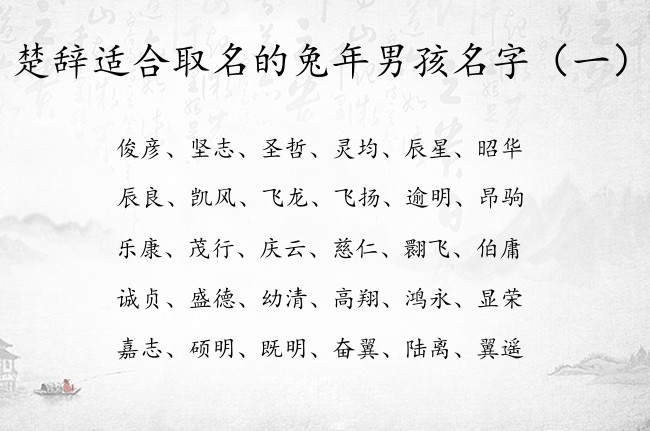 楚辞适合取名的兔年男孩名字（一）
俊彦、坚志、圣哲、灵均、辰星、昭华
辰良、凯风、飞龙、飞扬、逾明、昂驹
乐康、茂行、庆云、慈仁、翾飞、伯庸
诚贞、盛德、幼清、高翔、鸿永、显荣
嘉志、硕明、既明、奋翼、陆离、翼遥